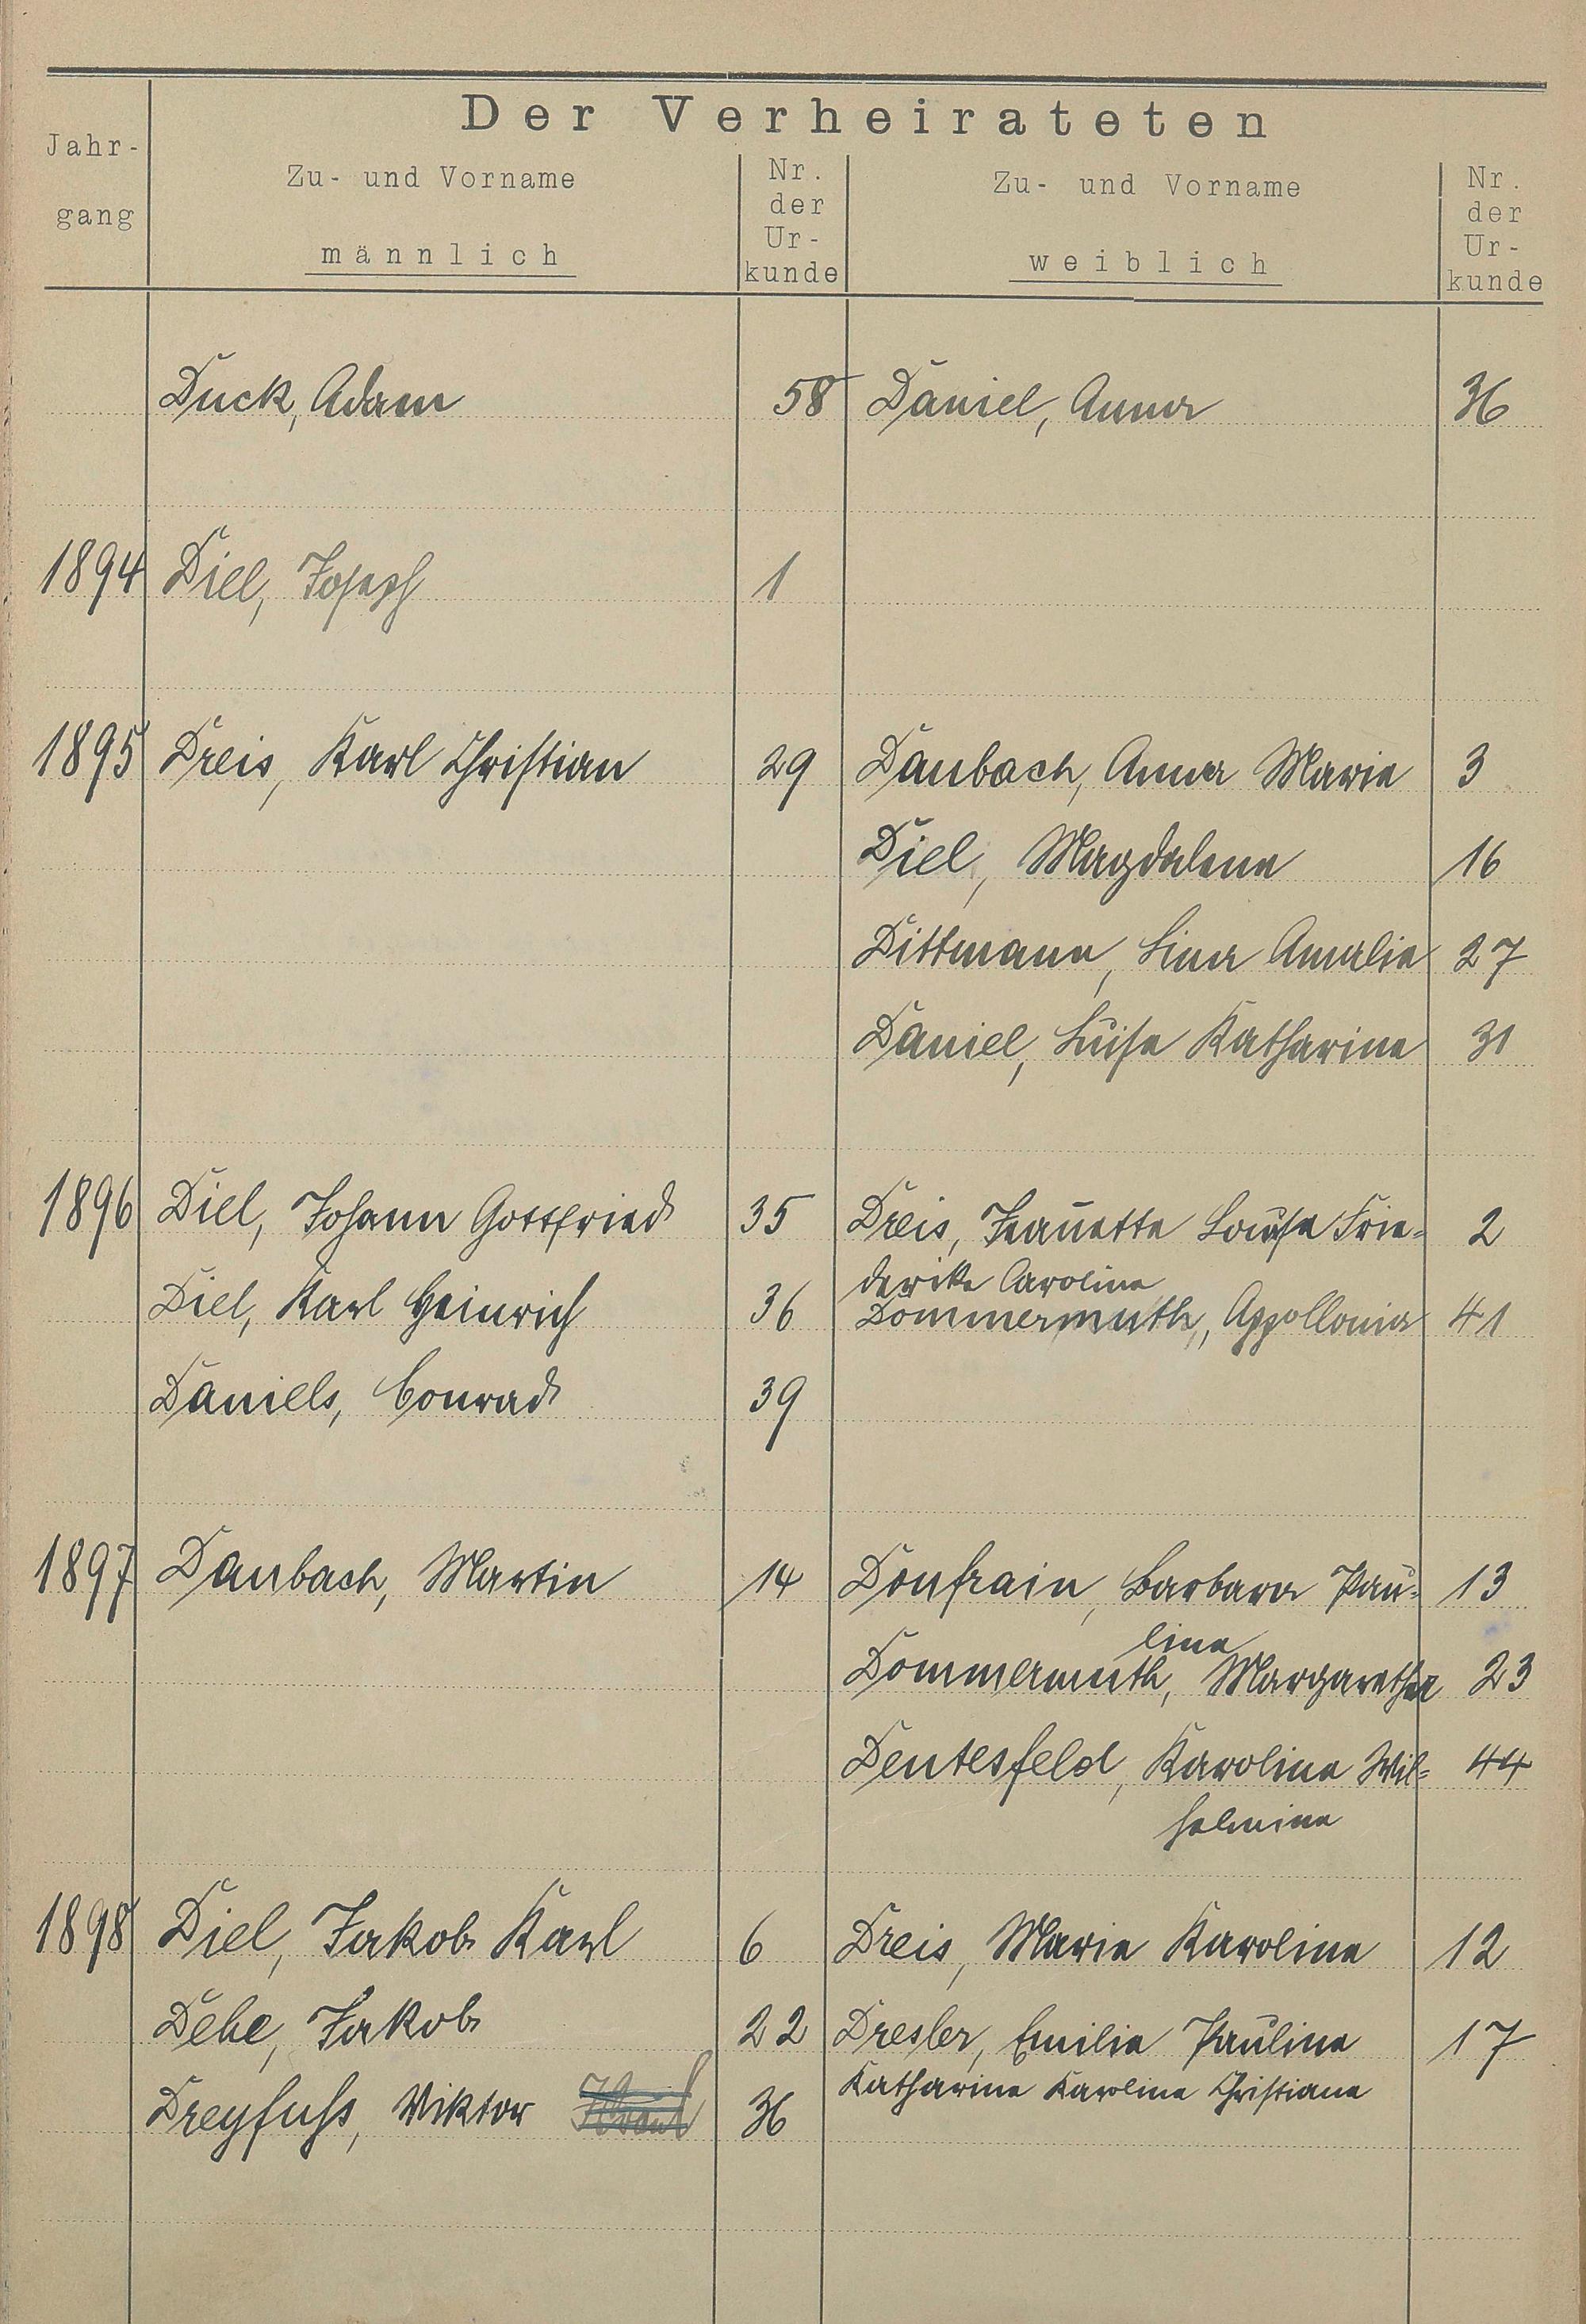 Der Verheirateten
Jahr-
gang
Zu- und Vorname
männlich
Nr.
der
Ur-
kunde
Zu- und Vorname
weiblich
Nr.
der
Ur-
kunde
Duck, Adam 58 Daniel, Anna 36
1894 Diel, Joseph 1
1895 Dreis, Karl Christian 29 Daubach, Anna Marie 3
Diel, Magdalene 16
Dittmann, Lina Amalie 27
Daniel, Luise Katharine 31
1896 Diel, Johann Gottfried 35 Dreis, Jeanette Louise Frie- 2
derike Caroline
Diel, Karl Heinrich 36 Dommermuth, Appollonia 41
Daniels, Conrad 39
1897 Daubach, Martin 14 Donfrain, Barbara Pau- 13
line
Dommermuth, Margaretha 23
Dentesfeld, Karoline Wil- 44
helmine
1898 Diel, Jakob Karl 6 Dreis, Marie Karoline 12
Debe, Jakob 22 Dresler, Emilie Pauline 17
Katharine Karoline Christiane
Dreyfuß, Viktor 36